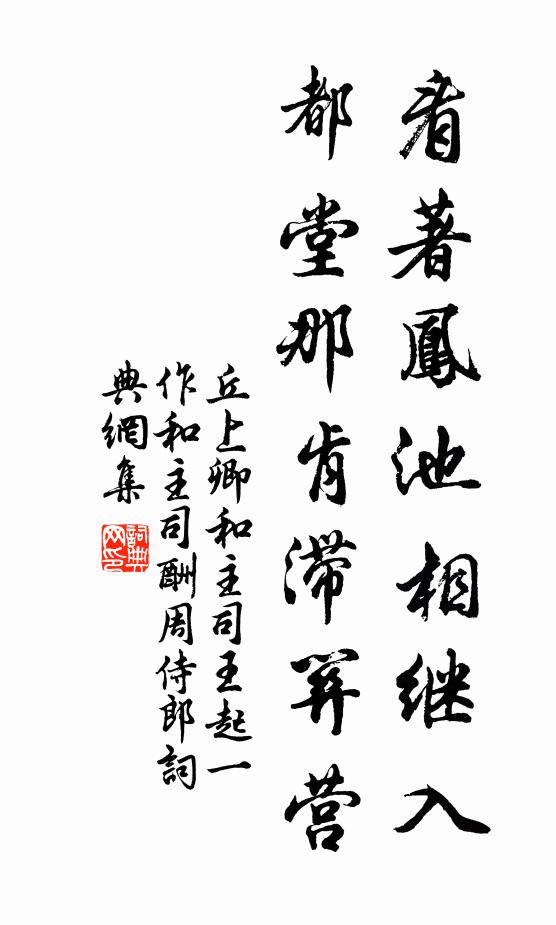 看著鳳池相继入
都堂那肯滞关营
丘上卿和主司王起一
作和主司酬周侍郎詞
典網集
詞典
网印